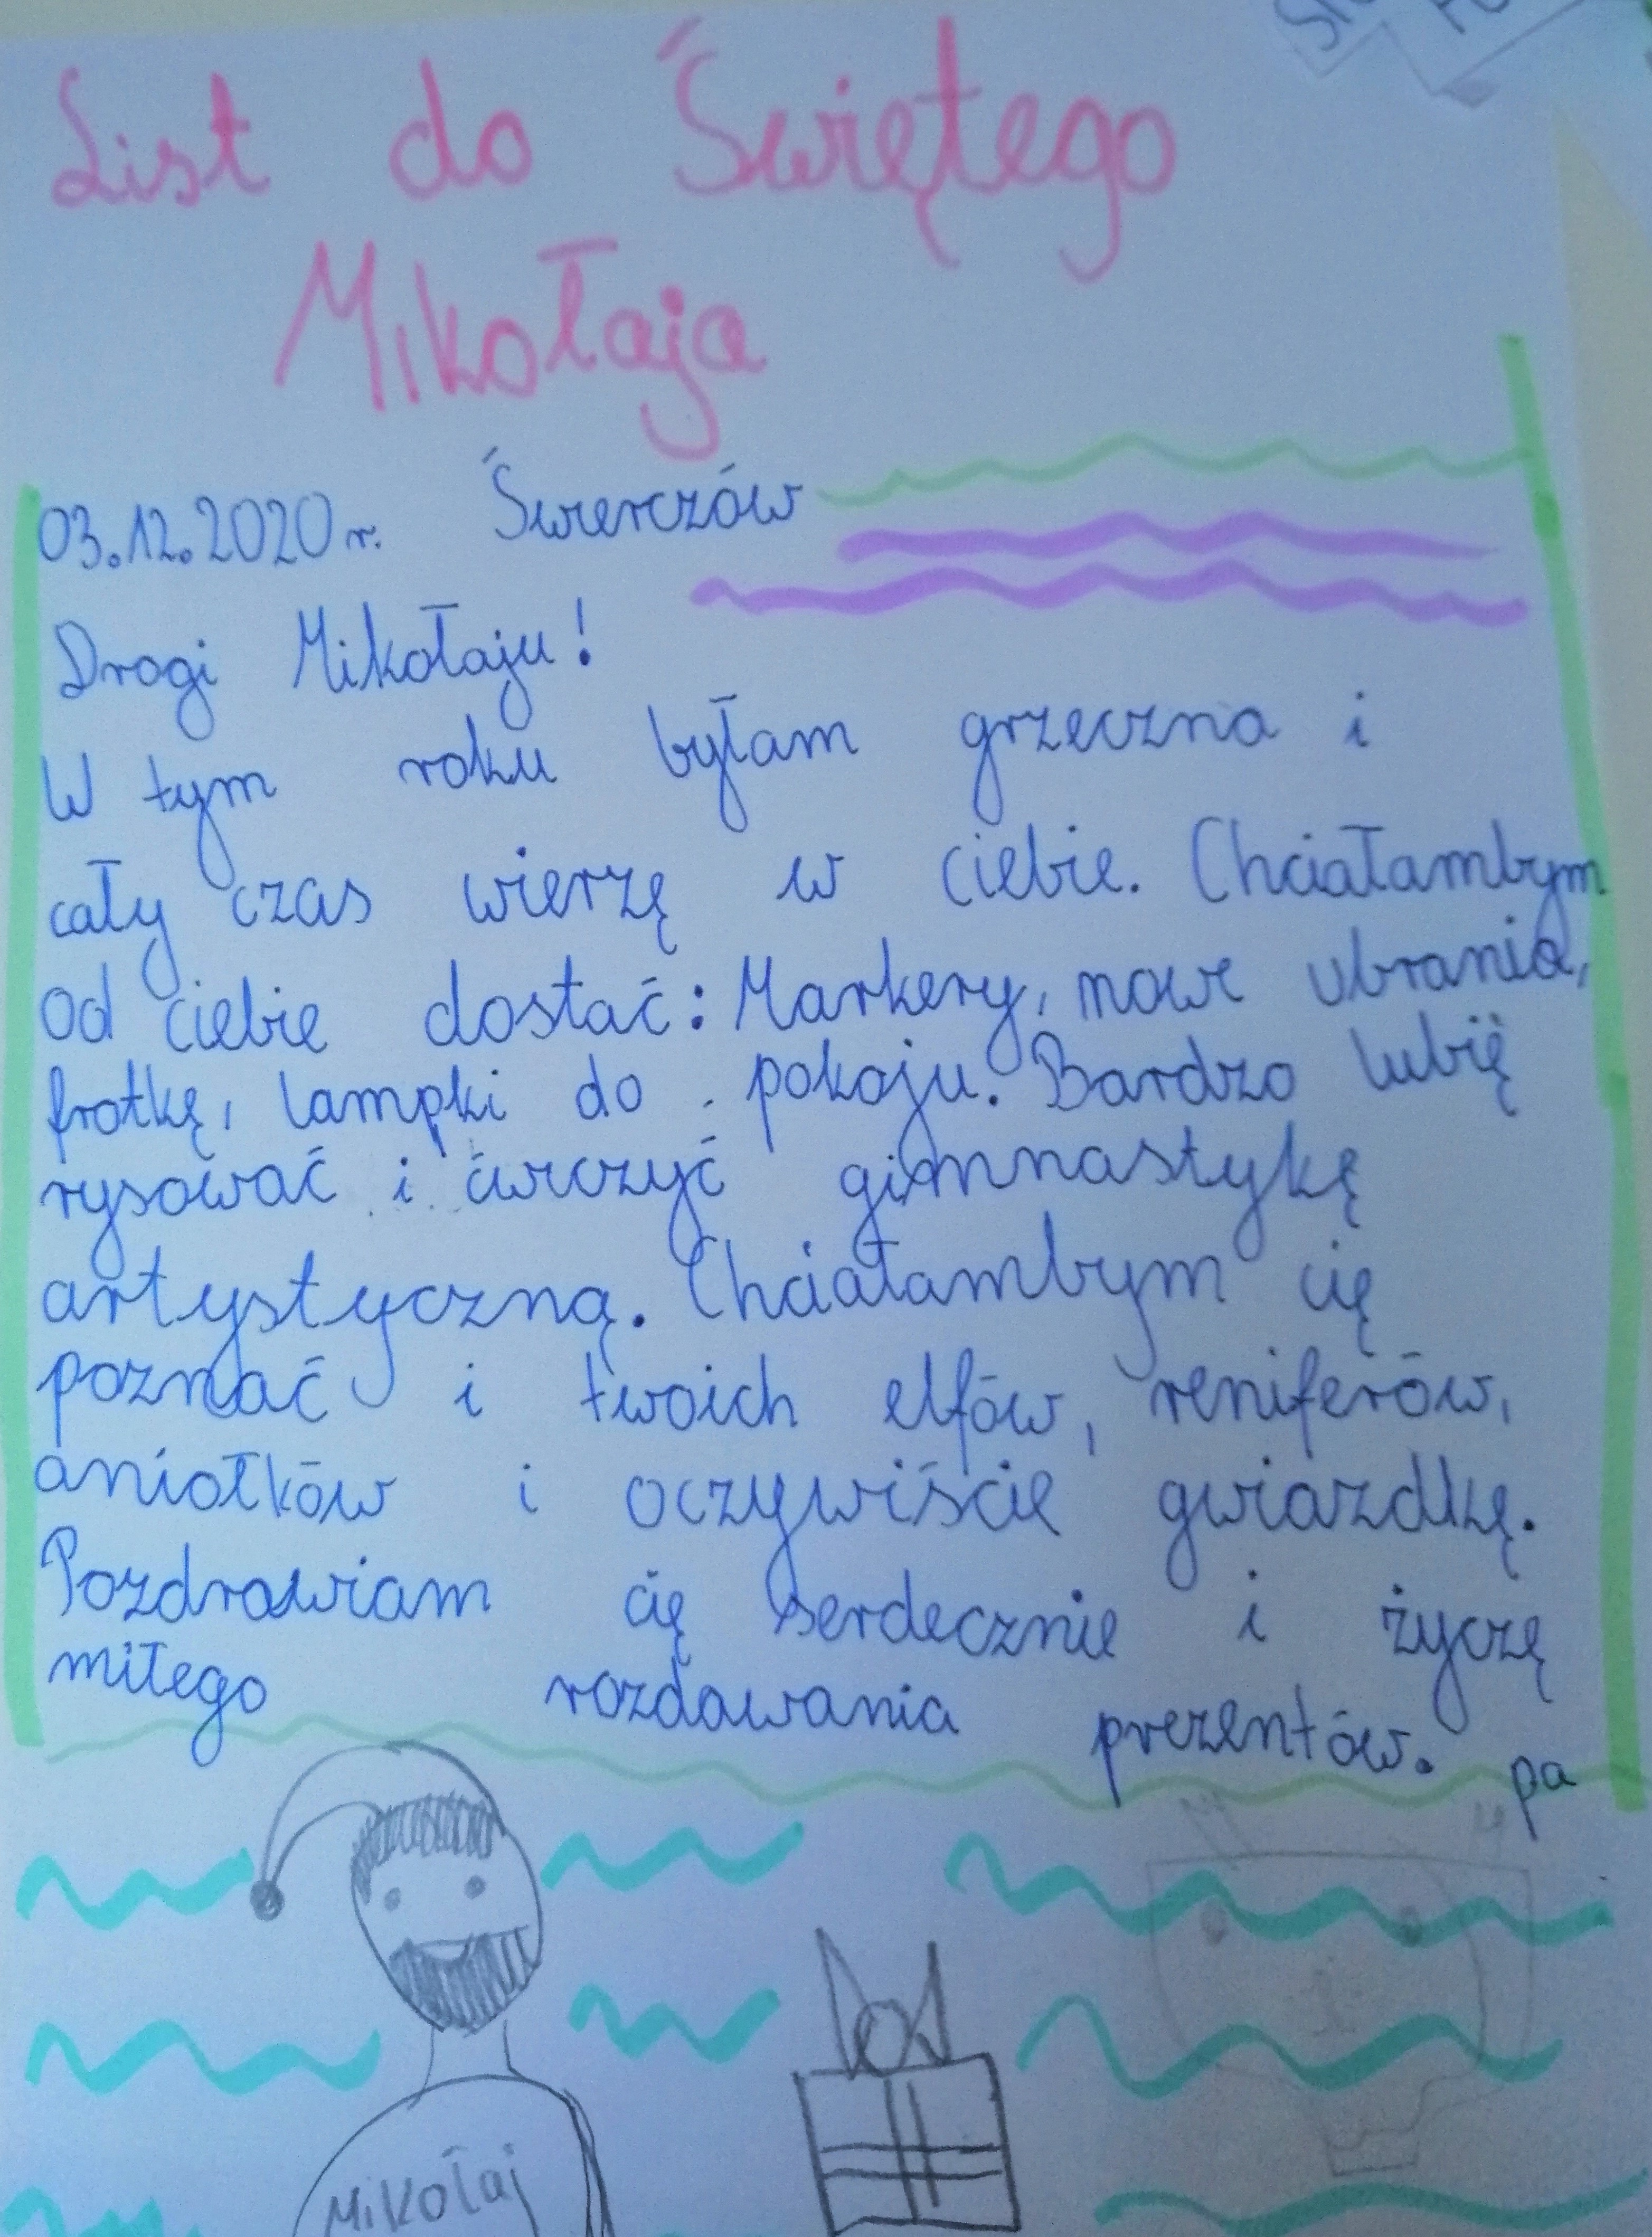 List do Świętego
Mikołaja
03.12.2020r. Świerczów
Drogi Mikołaju!
W tym roku byłam grzeczna i
cały czas wierzę w ciebie. Chciałambym
od ciebie dostać: Markery, nowe ubrania,
frotkę, lampki do pokoju. Bardzo lubię
rysować i ćwiczyć gimnastykę
artystyczną. Chciałambym cię
poznać i twoich elfów, reniferów,
aniołków i oczywiście gwiazdkę.
Pozdrawiam cię serdecznie i życzę
miłego rozdawania prezentów. pa
Mikołaj